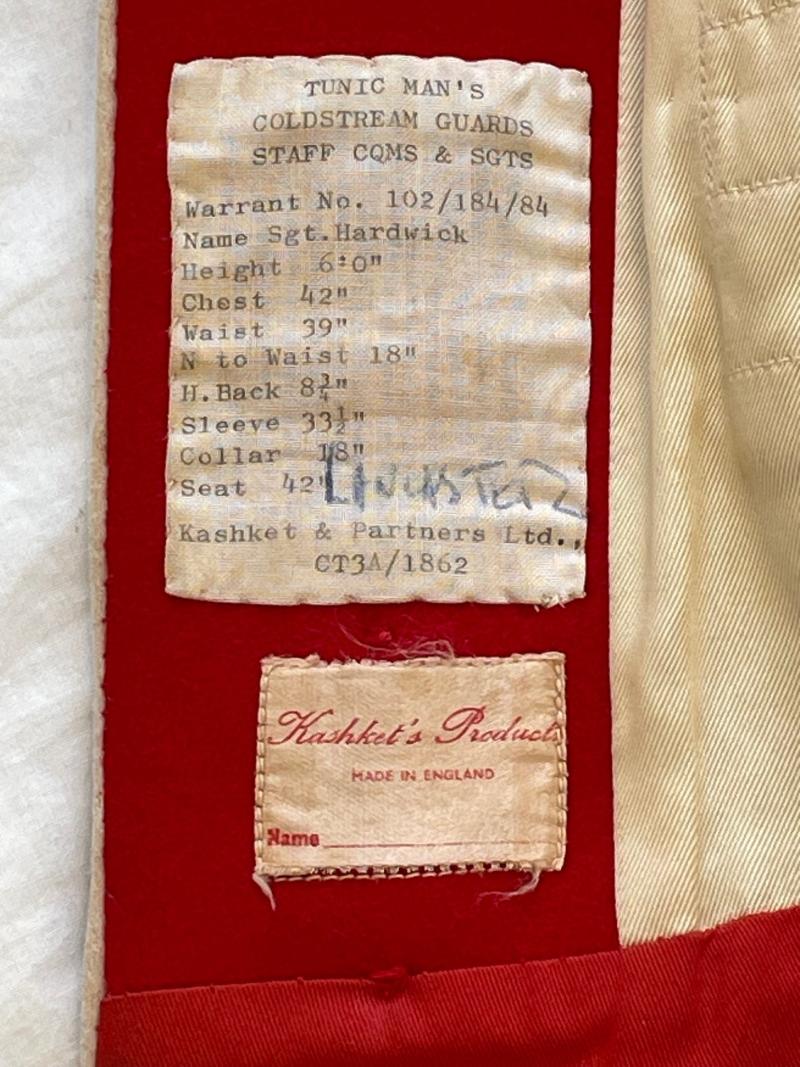 TUNIC MAN'S
COLDSTREAM GUARDS
STAFF CQMS & SGTS
Warrant No. 102/184/84
Name Sgt.Hardwick
Height 6'0"
Chest 42"
Waist 39"
N to Waist 18"
H.Back 8¾"
Sleeve 33½"
Collar 18"
Seat 42"
Kashket & Partners Ltd.,
CT3A/1862
Kashket's Products
MADE IN ENGLAND
Name